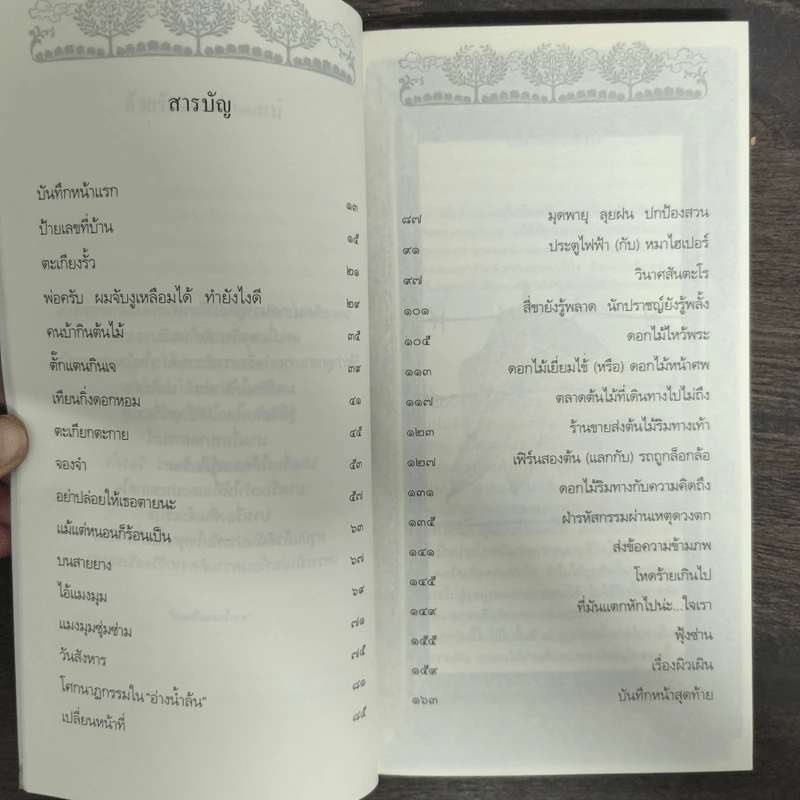 สารบัญ
บันทึกหน้าแรก ๑๓
ป้ายเลขที่บ้าน ๑๕
ตะเกียงรั้ว ๒๑
พ่อครับ ผมจับงูเหลือมได้ ทำยังไงดี ๒๙
คนบ้ากินต้นไม้ ๓๕
ตั๊กแตนกินเจ ๓๙
เทียนกิ่งดอกหอม ๔๑
ตะเกียกตะกาย ๔๕
จองจำ ๕๓
อย่าปล่อยให้เธอตายนะ ๕๗
แม้แต่หนอนก็ร้อนเป็น ๖๓
บนสายยาง ๖๗
ไอ้แมงมุม ๖๙
แมงมุมซุ่มซ่าม ๗๑
วันสังหาร ๗๕
โศกนาฏกรรมใน "อ่างน้ำล้น" ๘๑
เปลี่ยนหน้าที่ ๘๕
๘๗ มุดพายุ ลุยฝน ปกป้องสวน
๙๑ ประตูไฟฟ้า (กับ) หมาไฮเปอร์
๙๗ วินาศสันตะโร
๑๐๑ สี่ขายังรู้พลาด นักปราชญ์ยังรู้พลั้ง
๑๐๕ ดอกไม้ไหว้พระ
๑๑๓ ดอกไม้เยี่ยมไข้ (หรือ) ดอกไม้หน้าศพ
๑๑๗ ตลาดต้นไม้ที่เดินทางไปไม่ถึง
๑๒๓ ร้านขายส่งต้นไม้ริมทางเท้า
๑๒๗ เฟิร์นสองต้น (แลกกับ) รถถูกล็อกล้อ
๑๓๑ ดอกไม้ริมทางกับความคิดถึง
๑๓๕ ฝ่ารหัสกรรมผ่านเหตุดวงตก
๑๔๑ ส่งข้อความข้ามภพ
๑๔๕ โหดร้ายเกินไป
๑๔๙ ที่มันแตกหักไปน่ะ...ใจเรา
๑๕๕ ฟุ้งซ่าน
๑๕๙ เรื่องผิวเผิน
๑๖๓ บันทึกหน้าสุดท้าย